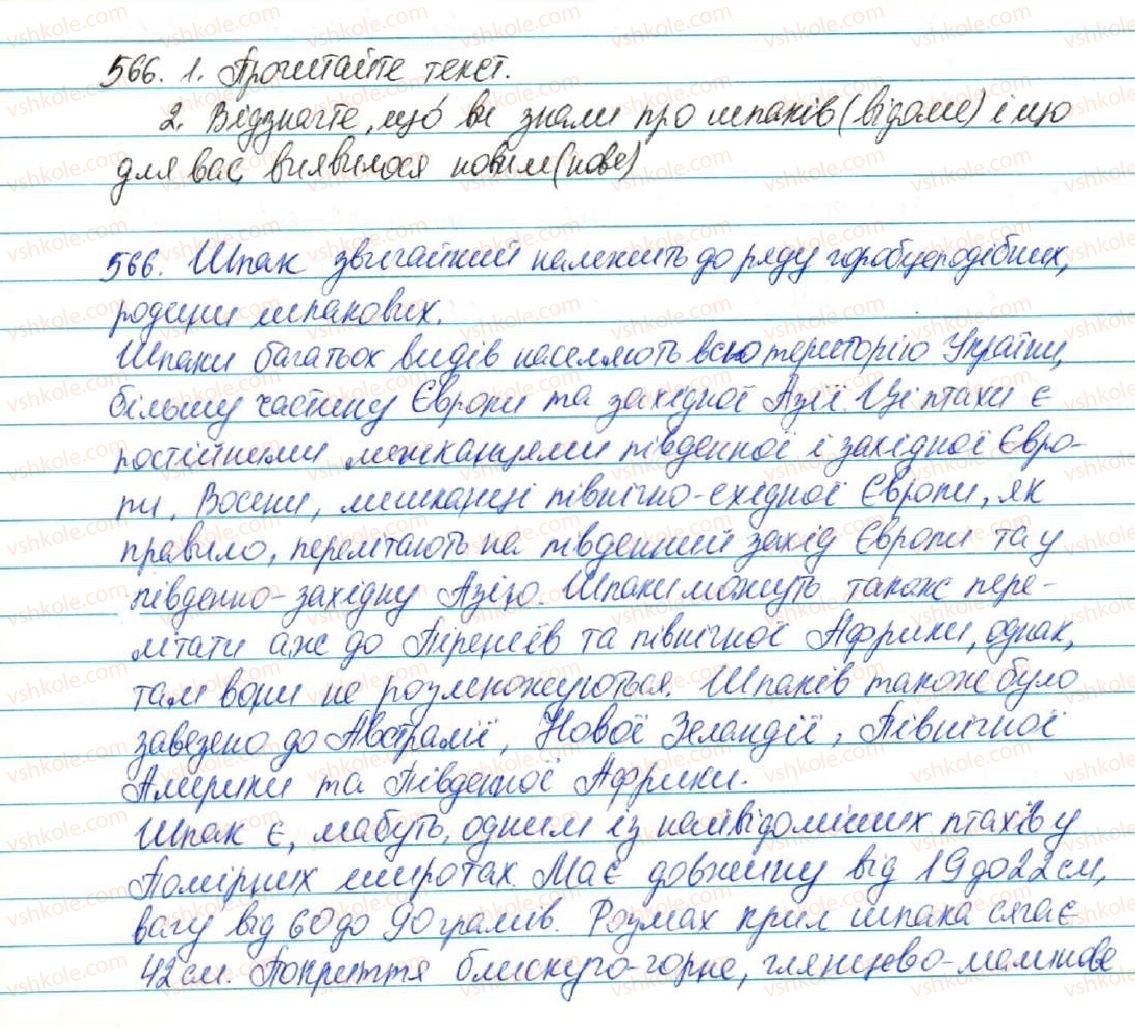 566. 1. Прочитайте текст.
2. Відзначте, що ви знали про шпаків (відоме) і що
для вас виявилося новим (нове)
566. Шпак звичайний належить до ряду горобцеподібних,
родини шпакових.
Шпаки багатьох видів населяють всю територію України,
більшу частину Європи та західної Азії. Ці птахи є
постійними мешканцями південної і західної Євро-
пи. Восени, мешканці північно-східної Європи, як
правило, перелітають на південний захід Європи та у
південно-західну Азію. Шпаки можуть також пере-
літати аж до Піренеїв та північної Африки, однак,
там вони не розмножуються. Шпаків також було
завезено до Австралії, Нової Зеландії, Північної
Америки та Південної Африки.
Шпак є, мабуть, одним із найвідоміших птахів у
помірних широтах. Має довжину від 19 до 22 см,
вагу від 60 до 90 грамів. Розмах крил шпака сягає
42 см. Покриття блискучо-чорне, глянцево-
vshkole.com